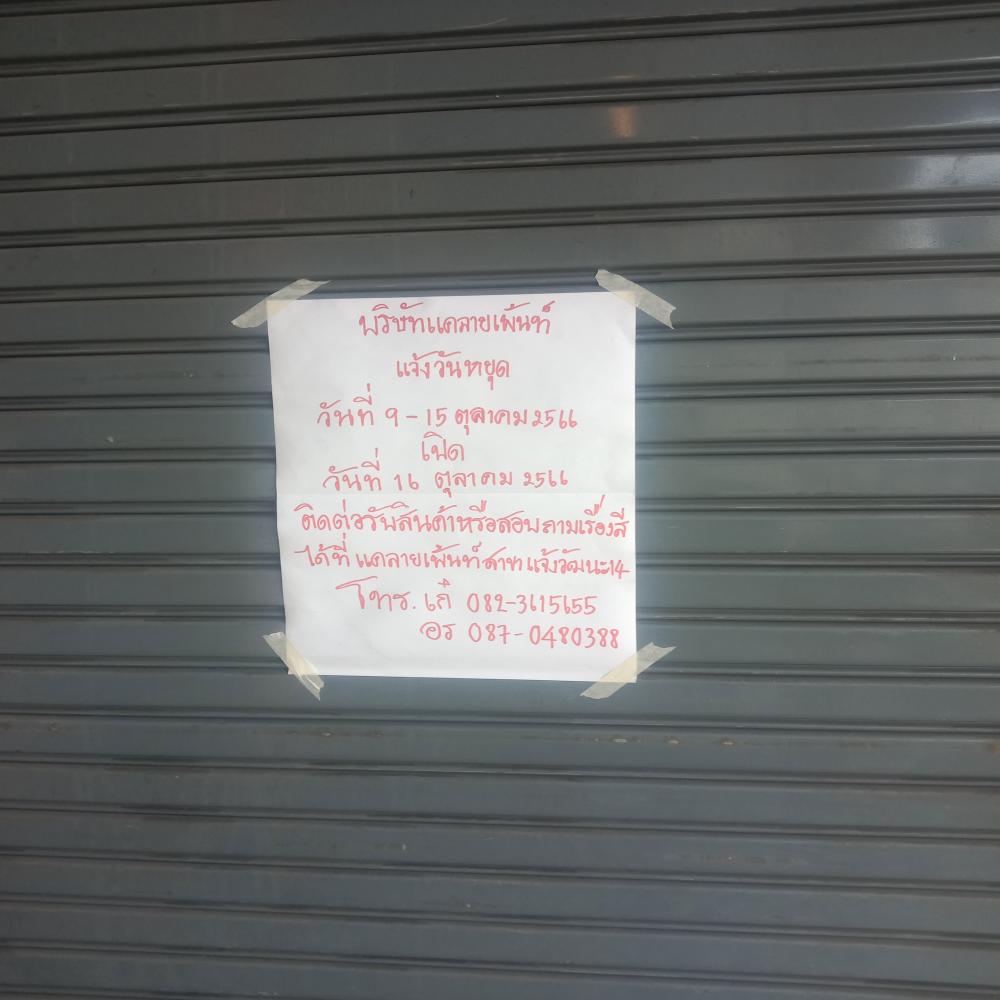 บริษัทแคลายเพ้นท์
แจ้งวันหยุด
วันที่ 9-15 ตุลาคม 2566
เปิด
วันที่ 16 ตุลาคม 2566
ติดต่อรับสินค้าหรือสอบถามเรื่องสี
ได้ที่ แคลายเพ้นท์สาขาแจ้งวัฒนะ14
โทร. เก๋ 082-3615655
อร 087-0480388